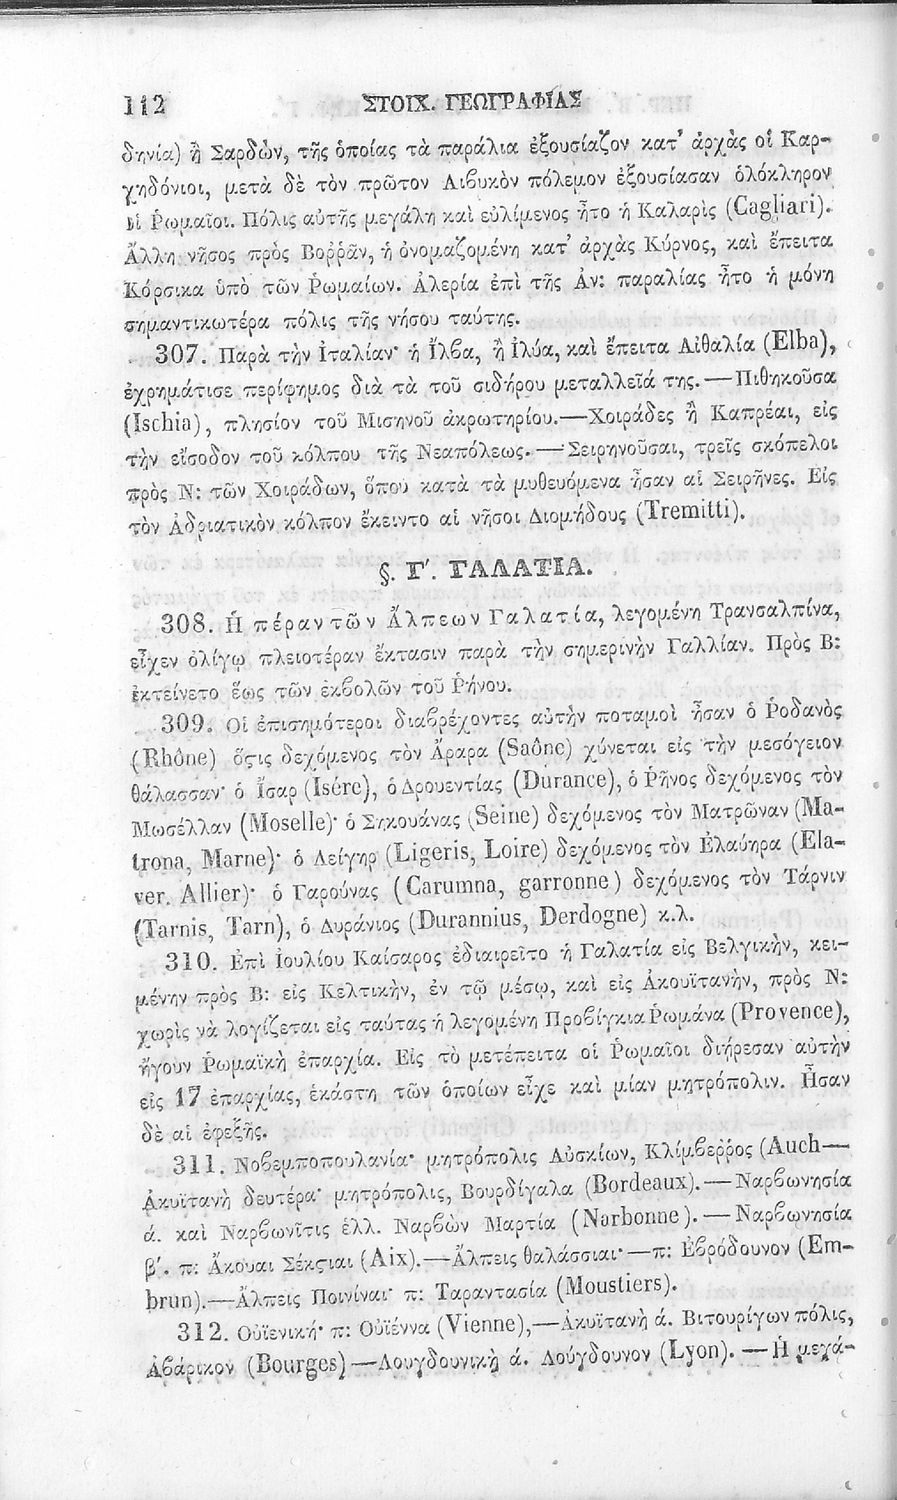 112 ΣΤΟΙΧ. ΓΕΩΓΡΑΦΙΑΣ
δηνία) ἢ Σαρδὼν, τῆς ὁποίας τὰ παράλια ἐξουσίαζον κατ’ ἀρχὰς οἱ Καρ-
χηδόνιοι, μετὰ δὲ τὸν πρῶτον Λιβυκὸν πόλεμον ἐξουσίασαν ὁλόκληρον
οἱ Ῥωμαῖοι. Πόλις αὐτῆς μεγάλη καὶ εὐλίμενος ἦτο ἡ Καλαρὶς (Cagliari).
Ἄλλη νῆσος πρὸς Βοῤῥᾶν, ἡ ὀνομαζομένη κατ’ ἀρχὰς Κύρνος, καὶ ἔπειτα
Κόρσικα ὑπὸ τῶν Ῥωμαίων. Ἀλερία ἐπὶ τῆς Ἀν: παραλίας ἦτο ἡ μόνη
σημαντικωτέρα πόλις τῆς νήσου ταύτης.
307. Παρὰ τὴν Ἰταλίαν· ἡ Ἴλβα, ἢ Ἰλύα, καὶ ἔπειτα Αἰθαλία (Elba),
ἐχρημάτισε περίφημος διὰ τὰ τοῦ σιδήρου μεταλλεῖά της.—Πιθηκοῦσα
(Ischia), πλησίον τοῦ Μισηνοῦ ἀκρωτηρίου.—Χοιράδες ἢ Καπρέαι, εἰς
τὴν εἴσοδον τοῦ κόλπου τῆς Νεαπόλεως.—Σειρηνοῦσαι, τρεῖς σκόπελοι
πρὸς Ν: τῶν Χοιράδων, ὅπου κατὰ τὰ μυθευόμενα ἦσαν αἱ Σειρῆνες. Εἰς
τὸν Ἀδριατικὸν κόλπον ἔκειντο αἱ νῆσοι Διομήδους (Tremitti).
§. Γ΄. ΓΑΛΑΤΙΑ.
308. Ἡ πέραν τῶν Ἄλπεων Γαλατία, λεγομένη Τρανσαλπίνα,
εἶχεν ὀλίγῳ πλειοτέραν ἔκτασιν παρὰ τὴν σημερινὴν Γαλλίαν. Πρὸς Β:
ἐκτείνετο ἕως τῶν ἐκβολῶν τοῦ Ῥήνου.
309. Οἱ ἐπισημότεροι διαβρέχοντες αὐτὴν ποταμοὶ ἦσαν ὁ Ῥοδανὸς
(Rhône) ὅςτις δεχόμενος τὸν Ἄραρα (Saône) χύνεται εἰς τὴν μεσόγειον
θάλασσαν· ὁ Ἴσαρ (Isére), ὁ Δρουεντίας (Durance), ὁ Ῥῆνος δεχόμενος τὸν
Μωσέλλαν (Moselle)· ὁ Σηκουάνας (Seine) δεχόμενος τὸν Ματρῶναν (Ma-
trona, Marne)· ὁ Λείγηρ (Ligeris, Loire) δεχόμενος τὸν Ἐλαύηρα (Ela-
ver, Allier)· ὁ Γαρούνας (Carumna, garronne) δεχόμενος τὸν Τάρνιν
(Tarnis, Tarn), ὁ Δυράνιος (Durannius, Derdogne) κ.λ.
310. Ἐπὶ Ἰουλίου Καίσαρος ἐδιαιρεῖτο ἡ Γαλατία εἰς Βελγικὴν, κει-
μένην πρὸς Β: εἰς Κελτικὴν, ἐν τῷ μέσῳ, καὶ εἰς Ἀκουϊτανὴν, πρὸς Ν:
χωρὶς νὰ λογίζεται εἰς ταύτας ἡ λεγομένη Προβίγκια Ῥωμάνα (Provence),
ἤγουν Ῥωμαϊκὴ ἐπαρχία. Εἰς τὸ μετέπειτα οἱ Ῥωμαῖοι διῄρεσαν αὐτὴν
εἰς 17 ἐπαρχίας, ἑκάστη τῶν ὁποίων εἶχε καὶ μίαν μητρόπολιν. Ἦσαν
δὲ αἱ ἐφεξῆς.
311. Νοβεμποπουλανία· μητρόπολις Αὐσκίων, Κλίμβεῤῥος (Auch—
Ἀκυϊτανὴ δευτέρα· μητρόπολις, Βουρδίγαλα (Bordeaux).—Ναρβωνησία
ά. καὶ Ναρβωνῖτις ἑλλ. Ναρβὼν Μαρτία (Narbonne).—Ναρβωνησία
β΄. π: Ἄκουαι Σέκςτιαι (Aix).—Ἄλπεις θαλάσσιαι·—π: Ἐβρόδουνον (Em-
brun).—Ἄλπεις Ποινίναι· π: Ταραντασία (Moustiers).
312. Οὐϊενική· π: Οὐϊέννα (Vienne),—Ἀκυϊτανὴ ά. Βιτουρίγων πόλις,
Ἀβάρικον (Bourges)—Λουγδουνικὴ ά. Λούγδουνον (Lyon).—Ἡ μεγά-